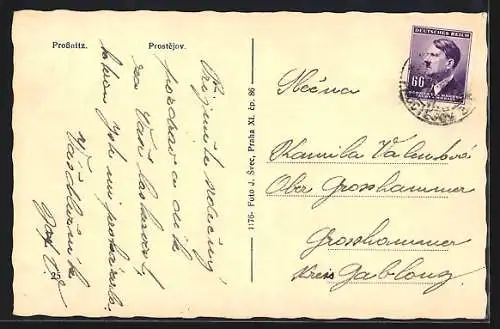 Proßnitz. Prostějov.
Přijměte srdečný
pozdrav a dík
za Vaši laskavost,
kterou jste mi prokázala.
Vděčný
1176- Foto J. Šrec, Praha XI. čp. 86
DEUTSCHES REICH
60
Slečna
Kamila Valentová
Ober Grosshammer
Grosshammer
Kreis Gablonz